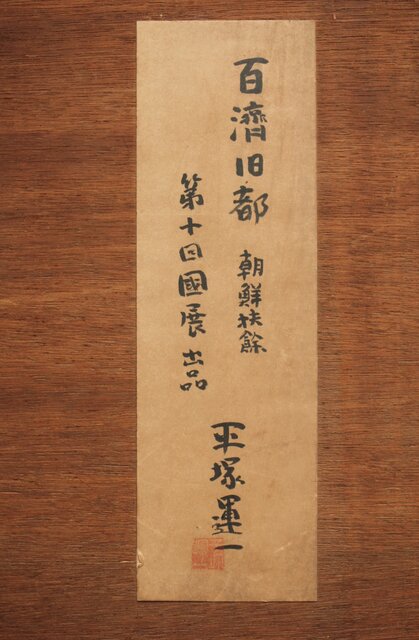 百濟旧都 朝鮮扶餘
第十回國展出品
平塚運一